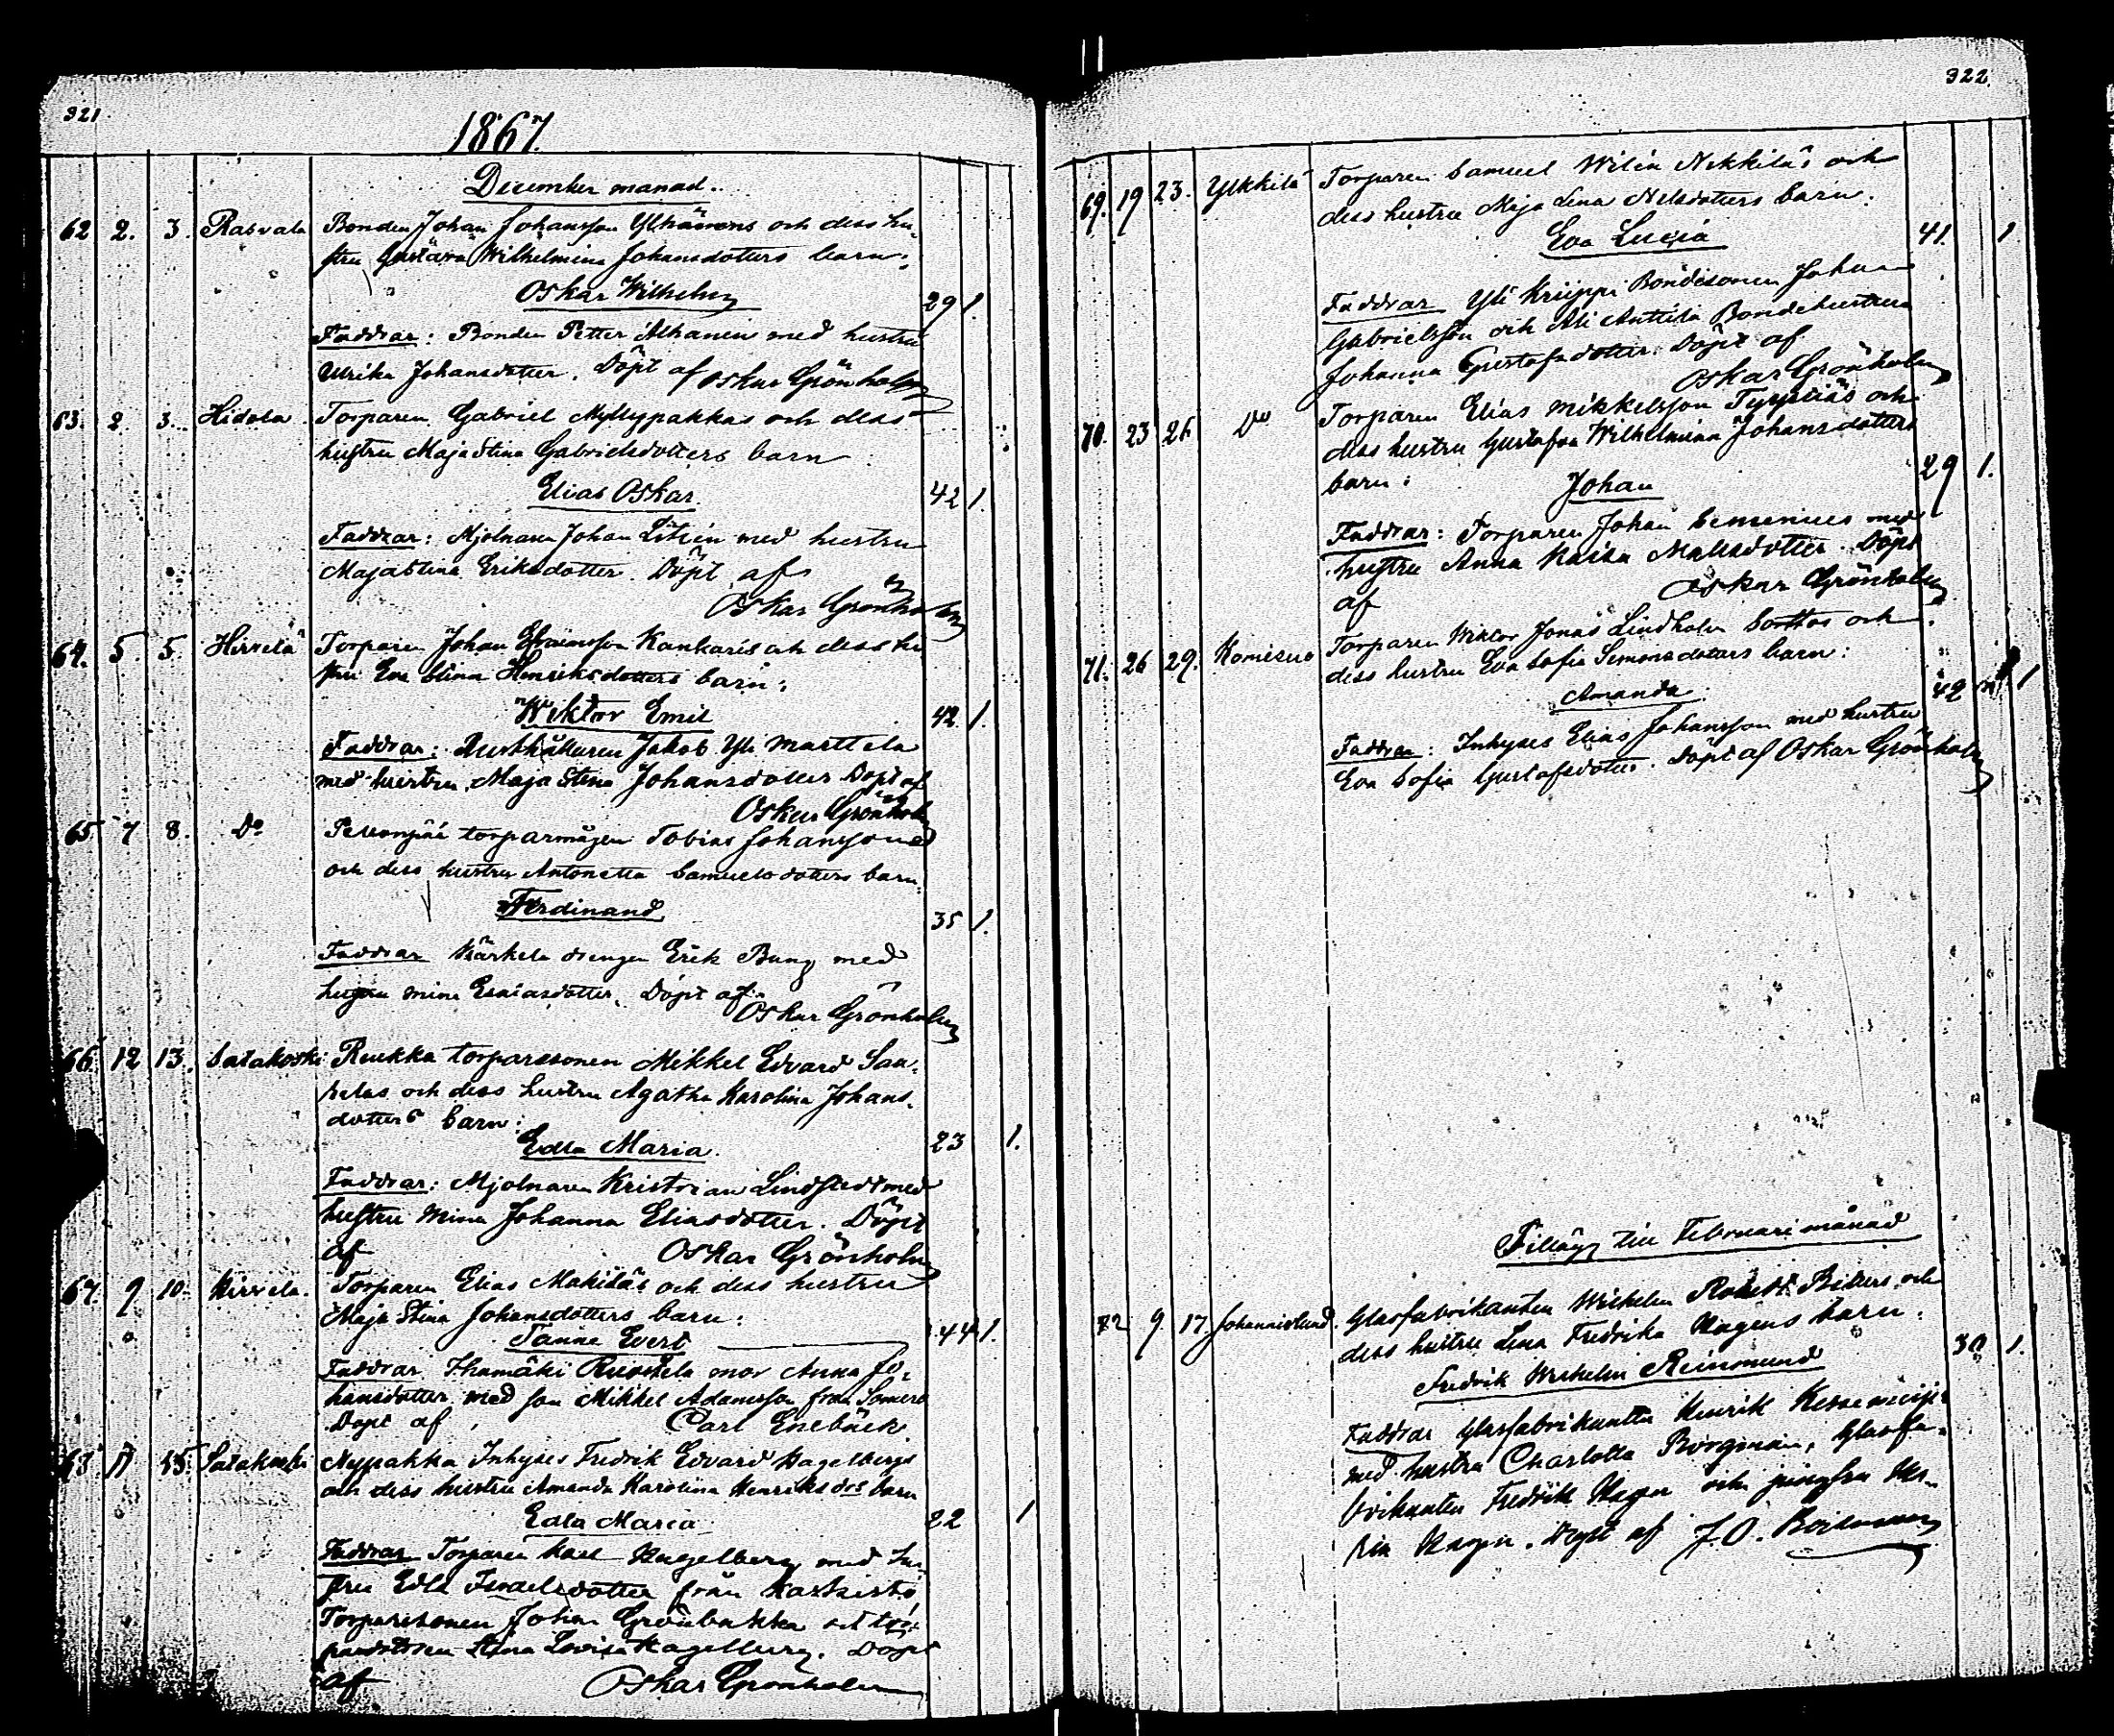 321
1867
December månad.
62 2. 3. Rasvala Bonden Johan Johansson och dess hu-
stru Gustava Wilhelmina Johansdotters barn:
Oskar Wilhelm 29 1.
Faddrar: Bonden Petter Alhanen med hustru
Ulrika Johansdotter. Döpt af Oskar Grönholm
63. 2. 3. Hidola Torparen Gabriel Myllypakkas och dess
hustru Maja Stina Gabrielsdotters barn
Elias Oskar 42 1.
Faddrar: Mjolnaren Johan med hustru
Maja Stina Eriksdotter. Döpt af
Oskar Grönholm
64. 5. 5. Hirvelä Torparen Johan Kankaris och dess hu
stru Eva Stina Henriksdotters barn:
Wiktor Emil 42. 1.
Faddrar: Rusthållaren Jakob Yli Marttela
med hustru Maja Stina Johansdotter Döpt af
Oskar Grönholm
65 7 8. Do torparmågen Tobias Johanssons
och dess hustru Antonetta Samuelsdotters barn
Ferdinand 35 1.
Faddrar Kärkela drengen Erik Bung med
hustru Mina Esaiasdotter. Döpt af
Oskar Grönholm
66. 12 13. Satakoski Ruukka torparesonen Mikkel Edvard Saa-
relas och dess hustru Agatha Karolina Johans-
dotters barn:
Edla Maria 23 1.
Faddrar: Mjolnaren Kristian Lindstedt med
hustru Mina Johanna Eliasdotter. Döpt
af Oskar Grönholm
67. 9 10. Hirvela. Torparen Elias Mäkiläs och dess hustru
Maja Stina Johansdotters barn:
Janne Evert 44 1.
Faddrar Ihamäki mor Anna Jo-
hansdotter med son Mikkel Adamsson från Somero
Döpt af Carl Enebäck
68. Satakoski Myllypakka Inhyses Fredrik Edvard Hagelbergs
och dess hustru Amanda Karolina Henriksdrs barn
Edla Maria 22 1
Faddrar Torparen Karl Hagelberg med hu-
stru Edla Israelsdotter från
Torparesonen Johan Grönbakka och tor-
Stina Lovisa Hagelberg. Döpt
af Oskar Grönholm
322
69. 19 23. Ylkkilä Torparen Samuel Wilén Nikkiläs och
dess hustru Maja Lena Nilsdotters barn:
Eva Lucia 41. 1.
Faddrar Yli Kriippi Bondesonen Johan
Gabrielsson och Ali Anttila Bondehustrun
Johanna Gustafsdotter. Döpt af
Oskar Grönholm
70. 23 26 Do Torparen Elias Mikkelsson och
dess hustru Gustafva Wilhelmina Johansdotters
barn: Johan 29 1.
Faddrar: Torparen Johan Simenius med
hustru Anna Kaisa Mattsdotter. Döpt
af Oskar Grönholm
71. 26 29. Komisuo Torparen Wiktor Jonas Lindholm och
dess hustru Eva Sofia Simonsdotters barn:
Amanda 42 1
Faddrar: Inhyses Elias Johansson med hustru
Eva Sofia Gustafsdotter. Döpt af Oskar Grönholm
Tillägg till Februari månad
72 9. 17. Johannislund. Glasfabrikanten Wilhelm Robert och
dess hustru Lena Fredrika Hagens barn:
Fredrik Wilhelm Reinomund 30 1.
Faddrar Glasfabrikanten Henrik
med hustru Charlotta Borgman, Glasfa-
brikanten Fredrik Hagen och jungfru
Hagen. Döpt af J. O.